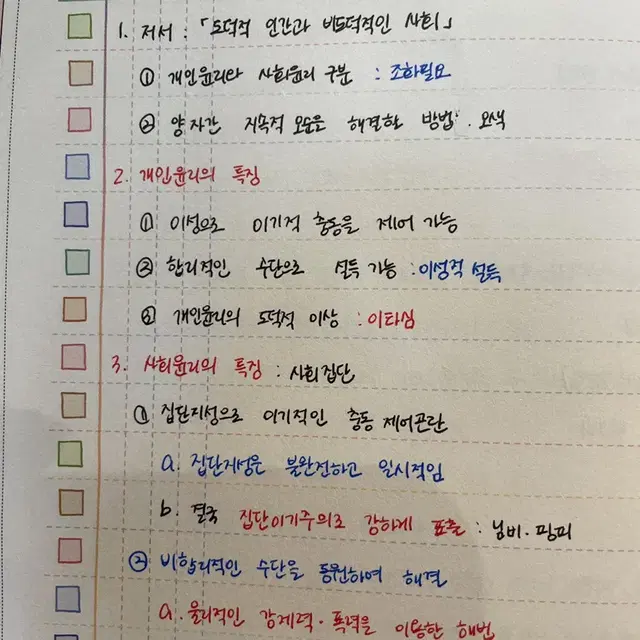 1. 저서 : 「도덕적 인간과 비도덕적인 사회」
① 개인윤리와 사회윤리 구분 : 조화필요
② 양자간 지속적 모순을 해결할 방법. 모색
2. 개인윤리의 특징
① 이성으로 이기적 충동을 제어 가능
② 합리적인 수단으로 설득 가능 : 이성적 설득
③ 개인윤리의 도덕적 이상 : 이타심
3. 사회윤리의 특징 : 사회집단
① 집단지성으로 이기적인 충동 제어곤란
a. 집단지성은 불완전하고 일시적임
b. 결국 집단이기주의로 강하게 표출 : 님비·핌피
② 비합리적인 수단을 동원하여 해결
a. 물리적인 강제력·폭력을 이용한 해법